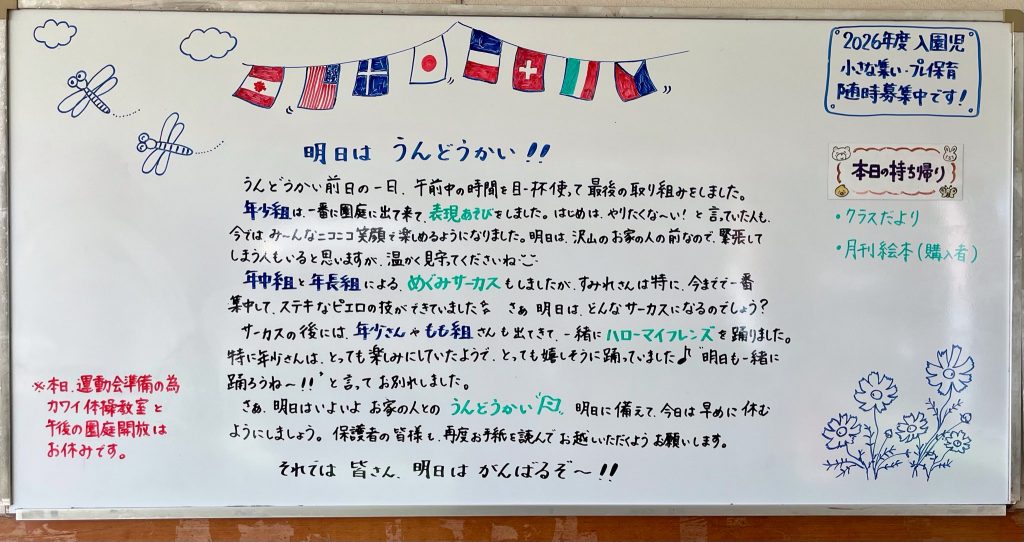 2026年度 入園児
小さな集い・プレ保育
随時募集中です!
明日は うんどうかい!!
うんどうかい前日の一日、午前中の時間を目一杯使って最後の取り組みをしました。
年少組は、一番に園庭に出て来て、表現あそびをしました。はじめは、やりたくな〜い!と言っていた人も、
今では、み〜んなニコニコ笑顔で楽しめるようになりました。明日は、沢山のお家の人の前なので、緊張して
しまう人もいると思いますが、温かく見守ってくださいね
年中組と年長組による、めぐみサーカスもしましたが、すみれさんは特に、今までで一番
集中して、ステキなピエロの技ができていました さぁ 明日は、どんなサーカスになるのでしょう?
サーカスの後には、年少さんやもも組さんも出てきて、一緒にハローマイフレンズを踊りました。
特に年少さんは、とっても楽しみにしていたようで、とっても嬉しそうに踊っていました♪"明日も一緒に
踊ろうね〜!!"と言ってお別れしました。
さぁ、明日はいよいよ お家の人との うんどうかい。明日に備えて、今日は早めに休む
ようにしましょう。保護者の皆様も、再度お手紙を読んでお越しいただくようお願いします。
それでは 皆さん、明日は がんばるぞ〜!!
本日の持ち帰り
・クラスだより
・月刊絵本(購入者)
※本日、運動会準備の為
カワイ体操教室と
午後の園庭開放は
お休みです。